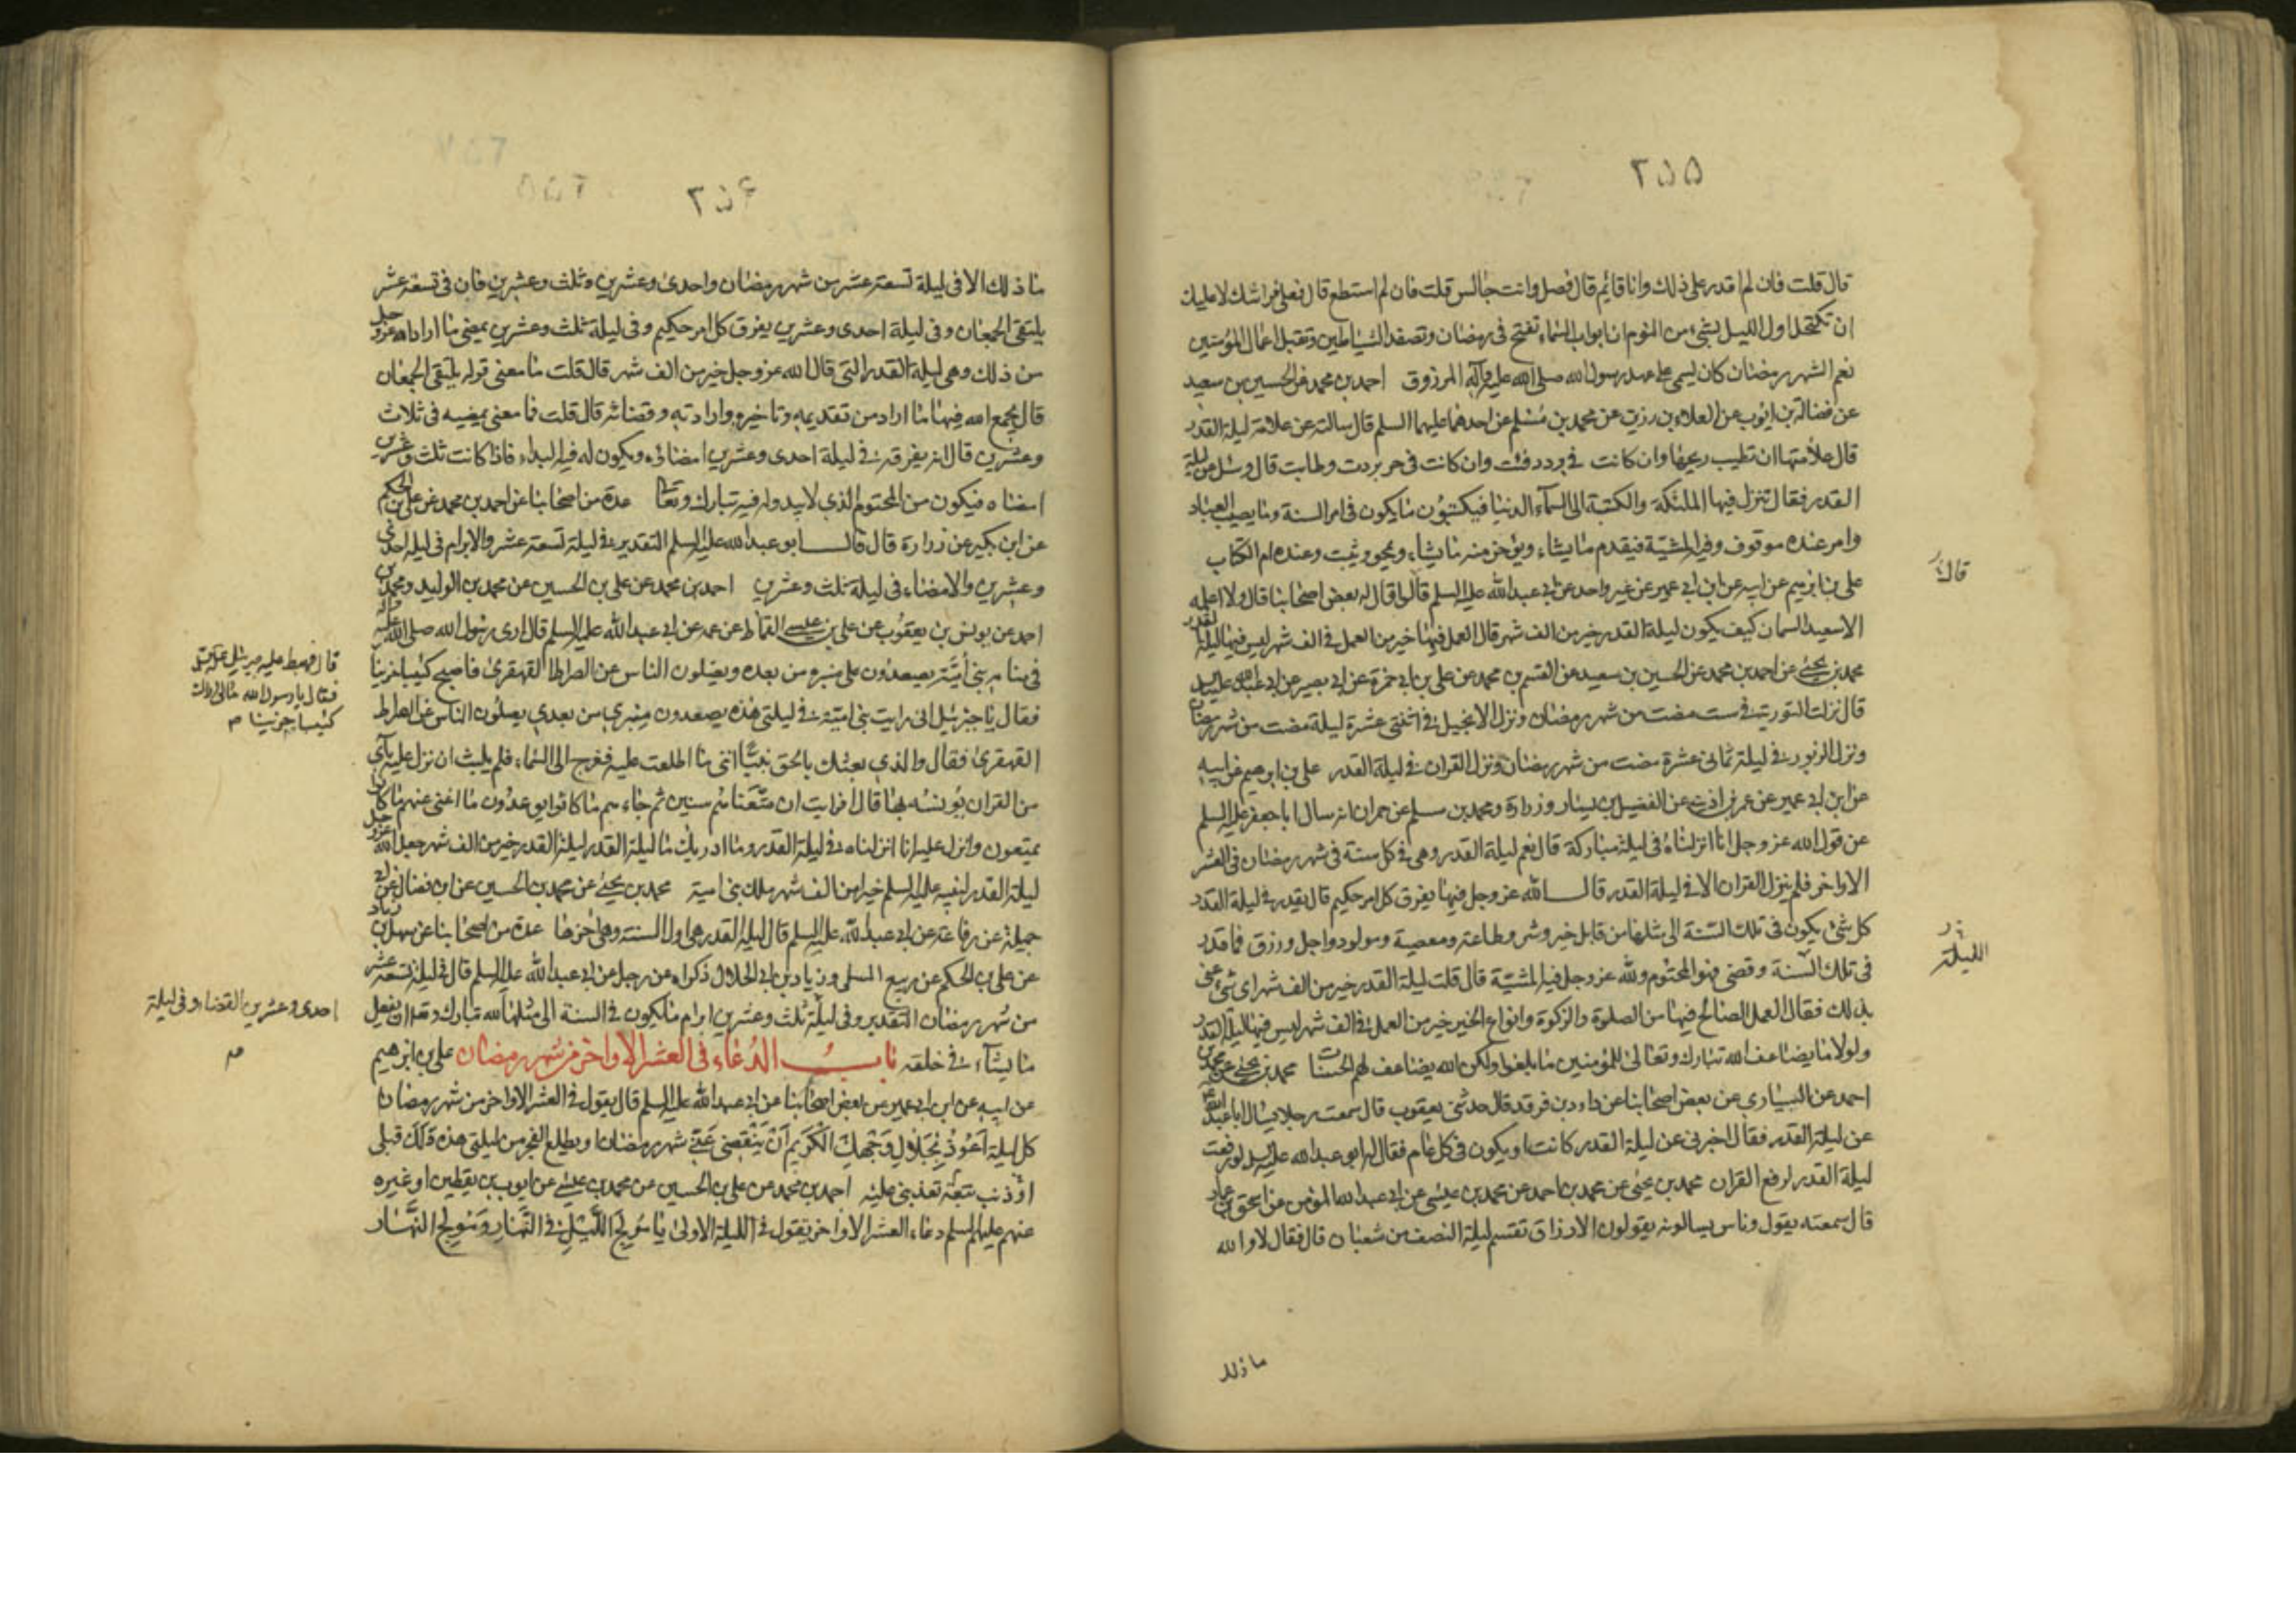 ٢٥٥
قال قلت فان لم اقدر على ذلك وانا قائم قال فصل وانت جالس قلت فان لم استطع قال فعلى فراشك لا عليك
ان تكتحل اول الليل بشئ من النوم ان ابواب السماء تفتح فى رمضان وتصفد الشياطين وتقبل اعمال المؤمنين
نعم الشهر رمضان كان يسمى على عهد رسول الله صلى الله عليه وآله المرزوق احمد بن محمد عن الحسين بن سعيد
عن فضالة بن ايوب عن العلاء بن رزين عن محمد بن مسلم عن احدهما عليهما السلم قال سالته عن علامة ليلة القدر
قال علامتها ان تطيب ريحها وان كانت فى برد دفئت وان كانت فى حر بردت وطابت قال وسئل عن ليلة
القدر فقال تنزل فيها الملئكة والكتبة الى السمآء الدنيا فيكتبون ما يكون فى امر السنة وما يصيب العباد
وامر عنده موقوف وفيه المشية فيقدم ما يشاء ويؤخر منه ما يشاء ويمحو ويثبت وعنده ام الكتاب
على بن ابرهيم عن ابيه عن ابن ابى عمير عن غير واحد عن ابى عبد الله عليه السلم قالوا قال له بعض اصحابنا قال ولا اعلمه
قال
الا سعيد السمان كيف يكون ليلة القدر خير من الف شهر قال العمل فيها خير من العمل فى الف شهر ليس فيها ليلة القدر
محمد بن يحيى عن احمد بن محمد عن الحسين بن سعيد عن القسم بن محمد عن على بن ابى حمزة عن ابى بصير عن ابى عبد الله عليه السلم
قال نزلت التورية فى ست مضت من شهر رمضان ونزل الانجيل فى اثنتى عشرة ليلة مضت من شهر رمضان
ونزل الزبور فى ليلة ثمانى عشرة مضت من شهر رمضان ونزل القران فى ليلة القدر على بن ابرهيم عن ابيه
عن ابن ابى عمير عن عمر بن اذينة عن الفضيل بن يسار وزرارة ومحمد بن مسلم عن حمران انه سال ابا جعفر عليه السلم
عن قول الله عز وجل انا انزلناه فى ليلة مباركة قال نعم ليلة القدر وهى فى كل سنة فى شهر رمضان فى العشر
الاواخر فلم ينزل القران الا فى ليلة القدر قال الله عز وجل فيها يفرق كل امر حكيم قال يقدر فى ليلة القدر
كل شئ يكون فى تلك السنة الى مثلها من قابل خير وشر وطاعة ومعصية ومولود واجل ورزق فما قدر
الليلة
فى تلك السنة وقضى فهو المحتوم ولله عز وجل فيه المشية قال قلت ليلة القدر خير من الف شهر اى شئ عنى
بذلك فقال العمل الصالح فيها من الصلوة والزكوة وانواع الخير خير من العمل فى الف شهر ليس فيها ليلة القدر
ولولا ما يضاعف الله تبارك وتعالى للمؤمنين ما بلغوا ولكن الله يضاعف لهم الحسنات محمد بن يحيى عن محمد بن
احمد عن السيارى عن بعض اصحابنا عن داود بن فرقد قال حدثنى يعقوب قال سمعت رجلا يسال ابا عبد الله
عن ليلة القدر فقال اخبرنى عن ليلة القدر كانت او يكون فى كل عام فقال له ابو عبد الله عليه السلم لو رفعت
ليلة القدر لرفع القران محمد بن يحيى عن محمد بن احمد عن محمد بن عيسى عن ابى عبد الله المؤمن عن اسحق بن عمار
قال سمعته يقول وناس يسالونه يقولون الارزاق تقسم ليلة النصف من شعبان قال فقال لا والله
ما ذلك
٢٥۶
ما ذلك الا فى ليلة تسعة عشر من شهر رمضان واحدى وعشرين وثلث وعشرين فان فى تسعة عشر
يلتقى الجمعان وفى ليلة احدى وعشرين يفرق كل امر حكيم وفى ليلة ثلث وعشرين يمضى ما اراد الله عز وجل
من ذلك وهى ليلة القدر التى قال الله عز وجل خير من الف شهر قال قلت ما معنى قوله يلتقى الجمعان
قال يجمع الله فيها ما اراد من تقديمه وتاخيره وارادته وقضائه قال قلت فما معنى يمضيه فى ثلاث
وعشرين قال انه يفرقه فى ليلة احدى وعشرين امضاؤه ويكون له فيه البداء فاذا كانت ثلث وعشرين
امضاه فيكون من المحتوم الذى لا يبدو له فيه تبارك وتعالى عدة من اصحابنا عن احمد بن محمد عن على بن الحكم
عن ابن بكير عن زرارة قال قال ابو عبد الله عليه السلم التقدير فى ليلة تسعة عشر والابرام فى ليلة احدى
وعشرين والامضاء فى ليلة ثلث وعشرين احمد بن محمد عن على بن الحسين عن محمد بن الوليد ومحمد بن
احمد عن يونس بن يعقوب عن على بن عيسى القماط عن عمه عن ابى عبد الله عليه السلم قال ارى رسول الله صلى الله عليه وآله
فى منامه بنى امية يصعدون على منبره من بعده ويضلون الناس عن الصراط القهقرى فاصبح كئيبا حزينا
قال فهبط عليه جبرئيل
فقال يا رسول الله مالى اراك
كئيبا حزينا م
فقال يا جبرئيل انى رايت بنى امية فى ليلتى هذه يصعدون منبرى من بعدى يضلون الناس عن الصراط
القهقرى فقال والذى بعثك بالحق نبيا اننى ما اطلعت عليه فعرج الى السماء فلم يلبث ان نزل عليه بآى
من القران يؤنسه بها قال افرايت ان متعناهم سنين ثم جاءهم ما كانوا يوعدون ما اغنى عنهم ما كانوا
يمتعون وانزل عليه انا انزلناه فى ليلة القدر وما ادريك ما ليلة القدر ليلة القدر خير من الف شهر جعل الله عز وجل
ليلة القدر لنبيه عليه السلم خيرا من الف شهر ملك بنى امية محمد بن يحيى عن محمد بن الحسين عن ابن فضال عن ابى
جميلة عن رفاعة عن ابى عبد الله عليه السلم قال ليلة القدر هى اول السنة وهى اخرها عدة من اصحابنا عن سهل بن زياد
عن على بن الحكم عن ربيع المسلى وزياد بن ابى الحلال ذكراه عن رجل عن ابى عبد الله عليه السلم قال فى ليلة تسعة عشر
من شهر رمضان التقدير وفى ليلة ثلث وعشرين ابرام ما يكون فى السنة الى مثلها لله تبارك وتعالى ان يفعل
احدى وعشرين القضاء وفى ليلة
م
ما يشآء فى خلقه باب الدعاء فى العشر الاواخر من شهر رمضان على بن ابرهيم
عن ابيه عن ابن ابى عمير عن بعض اصحابنا عن ابى عبد الله عليه السلم قال يقول فى العشر الاواخر من شهر رمضان
كل ليلة اعوذ بجلال وجهك الكريم ان ينقضى عنى شهر رمضان او يطلع الفجر من ليلتى هذه ولك قبلى
او ذنب تبعة تعذبنى عليه احمد بن محمد عن على بن الحسين عن محمد بن عيسى عن ايوب بن يقطين او غيره
عنهم عليهم السلم دعاء العشر الاواخر يقول فى الليلة الاولى يا مولج الليل فى النهار ومولج النهار